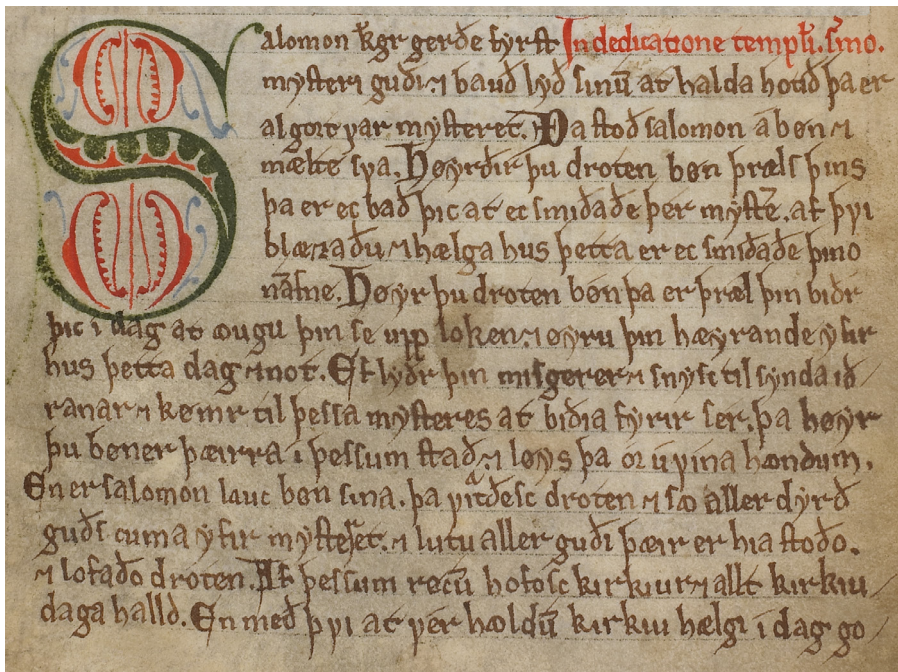 Salomon kgr gerðe fyrst In dedicatione templi. sermo.
mysteri guði ⁊ bauð lyð sinū at halda hotið þa er
algort var mysteret. Þa stoð salomon a bøn ⁊
mælte sva. Høyrðir þu droten bøn þræls þins
þa er ec bað þic at ec smiðaðe þer myste. af þvi
blæzaðu ⁊ hælga hus þetta er ec smiðaðe þino
namne. Høyr þu droten bøn þa er þræl þin biðr
þic i dag at ꜹugu þin se upp loken ⁊ øyru þin hæyrande yfir
hus þetta dag ⁊ not. Ef lyðr þin misgerer ⁊ snysc til synda ið
ranar ⁊ kømr til þessa mysteres at biðia fyrir ser. þa høyr
þu bøner þæirra i þessum stað. ⁊ løys þa or uvina hændum.
En er salomon lauc bøn sina. þa vitraðesc droten ⁊ sæ aller dyrð
guðs cuma yfir mysteret. ⁊ lutu aller guði þæir er hia stoðo.
⁊ lofaðo droten. Af þessum røcū hofosc kirkiur ⁊ allt kirkiu
daga halld. En með þvi at vér hældū kirkiu hælgi i dag go